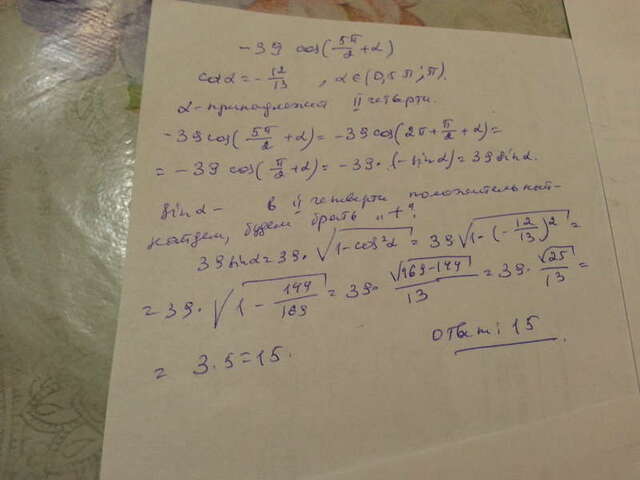 -39 cos(5π/2+α)
cosα=-12/13, α∈(0,5π;π).
α-принадлежит II четверти.
-39cos(5π/2+α)=-39cos(2π+π/2+α)=
=-39 cos(π/2+α)=-39·(-sinα)=39sinα.
sinα- в II четверти положительный-
найдем, будем брать „+".
39sinα=39·√(1-cos²α)=39√(1-(-12/13)²)=
=39·√(1-144/169)=39·√(169-144)/13=39·√25/13=
=3·5=15.
Ответ: 15